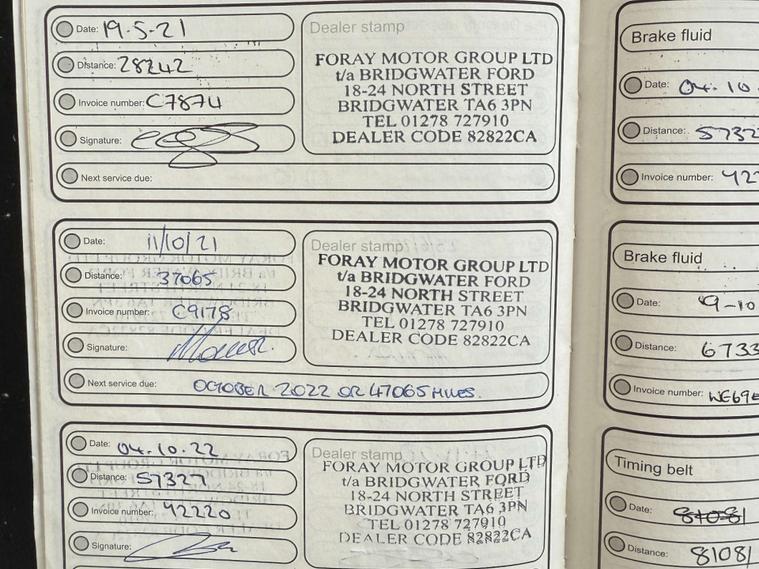 Date: 19.5-21
Distance: 28242
Invoice number: C7874
Signature:
Next service due:
Dealer stamp
FORAY MOTOR GROUP LTD
t/a BRIDGWATER FORD
18-24 NORTH STREET
BRIDGWATER TA6 3PN
TEL 01278 727910
DEALER CODE 82822CA
Date: 11/10/21
Distance: 37065
Invoice number: C9178
Signature:
Next service due: OCTOBER 2022 OR 47065 MILES.
Dealer stamp
FORAY MOTOR GROUP LTD
t/a BRIDGWATER FORD
18-24 NORTH STREET
BRIDGWATER TA6 3PN
TEL 01278 727910
DEALER CODE 82822CA
Date: 04.10.22
Distance: 57327
Invoice number: 42220
Signature:
Dealer stamp
FORAY MOTOR GROUP LTD
t/a BRIDGWATER FORD
18-24 NORTH STREET
BRIDGWATER TA6 3PN
TEL 01278 727910
DEALER CODE 82822CA
Brake fluid
Date: 04.10.
Distance: 5732
Invoice number: 422
Brake fluid
Date: 9-10
Distance: 6733
Invoice number: WE69
Timing belt
Date: 81081
Distance: 81081